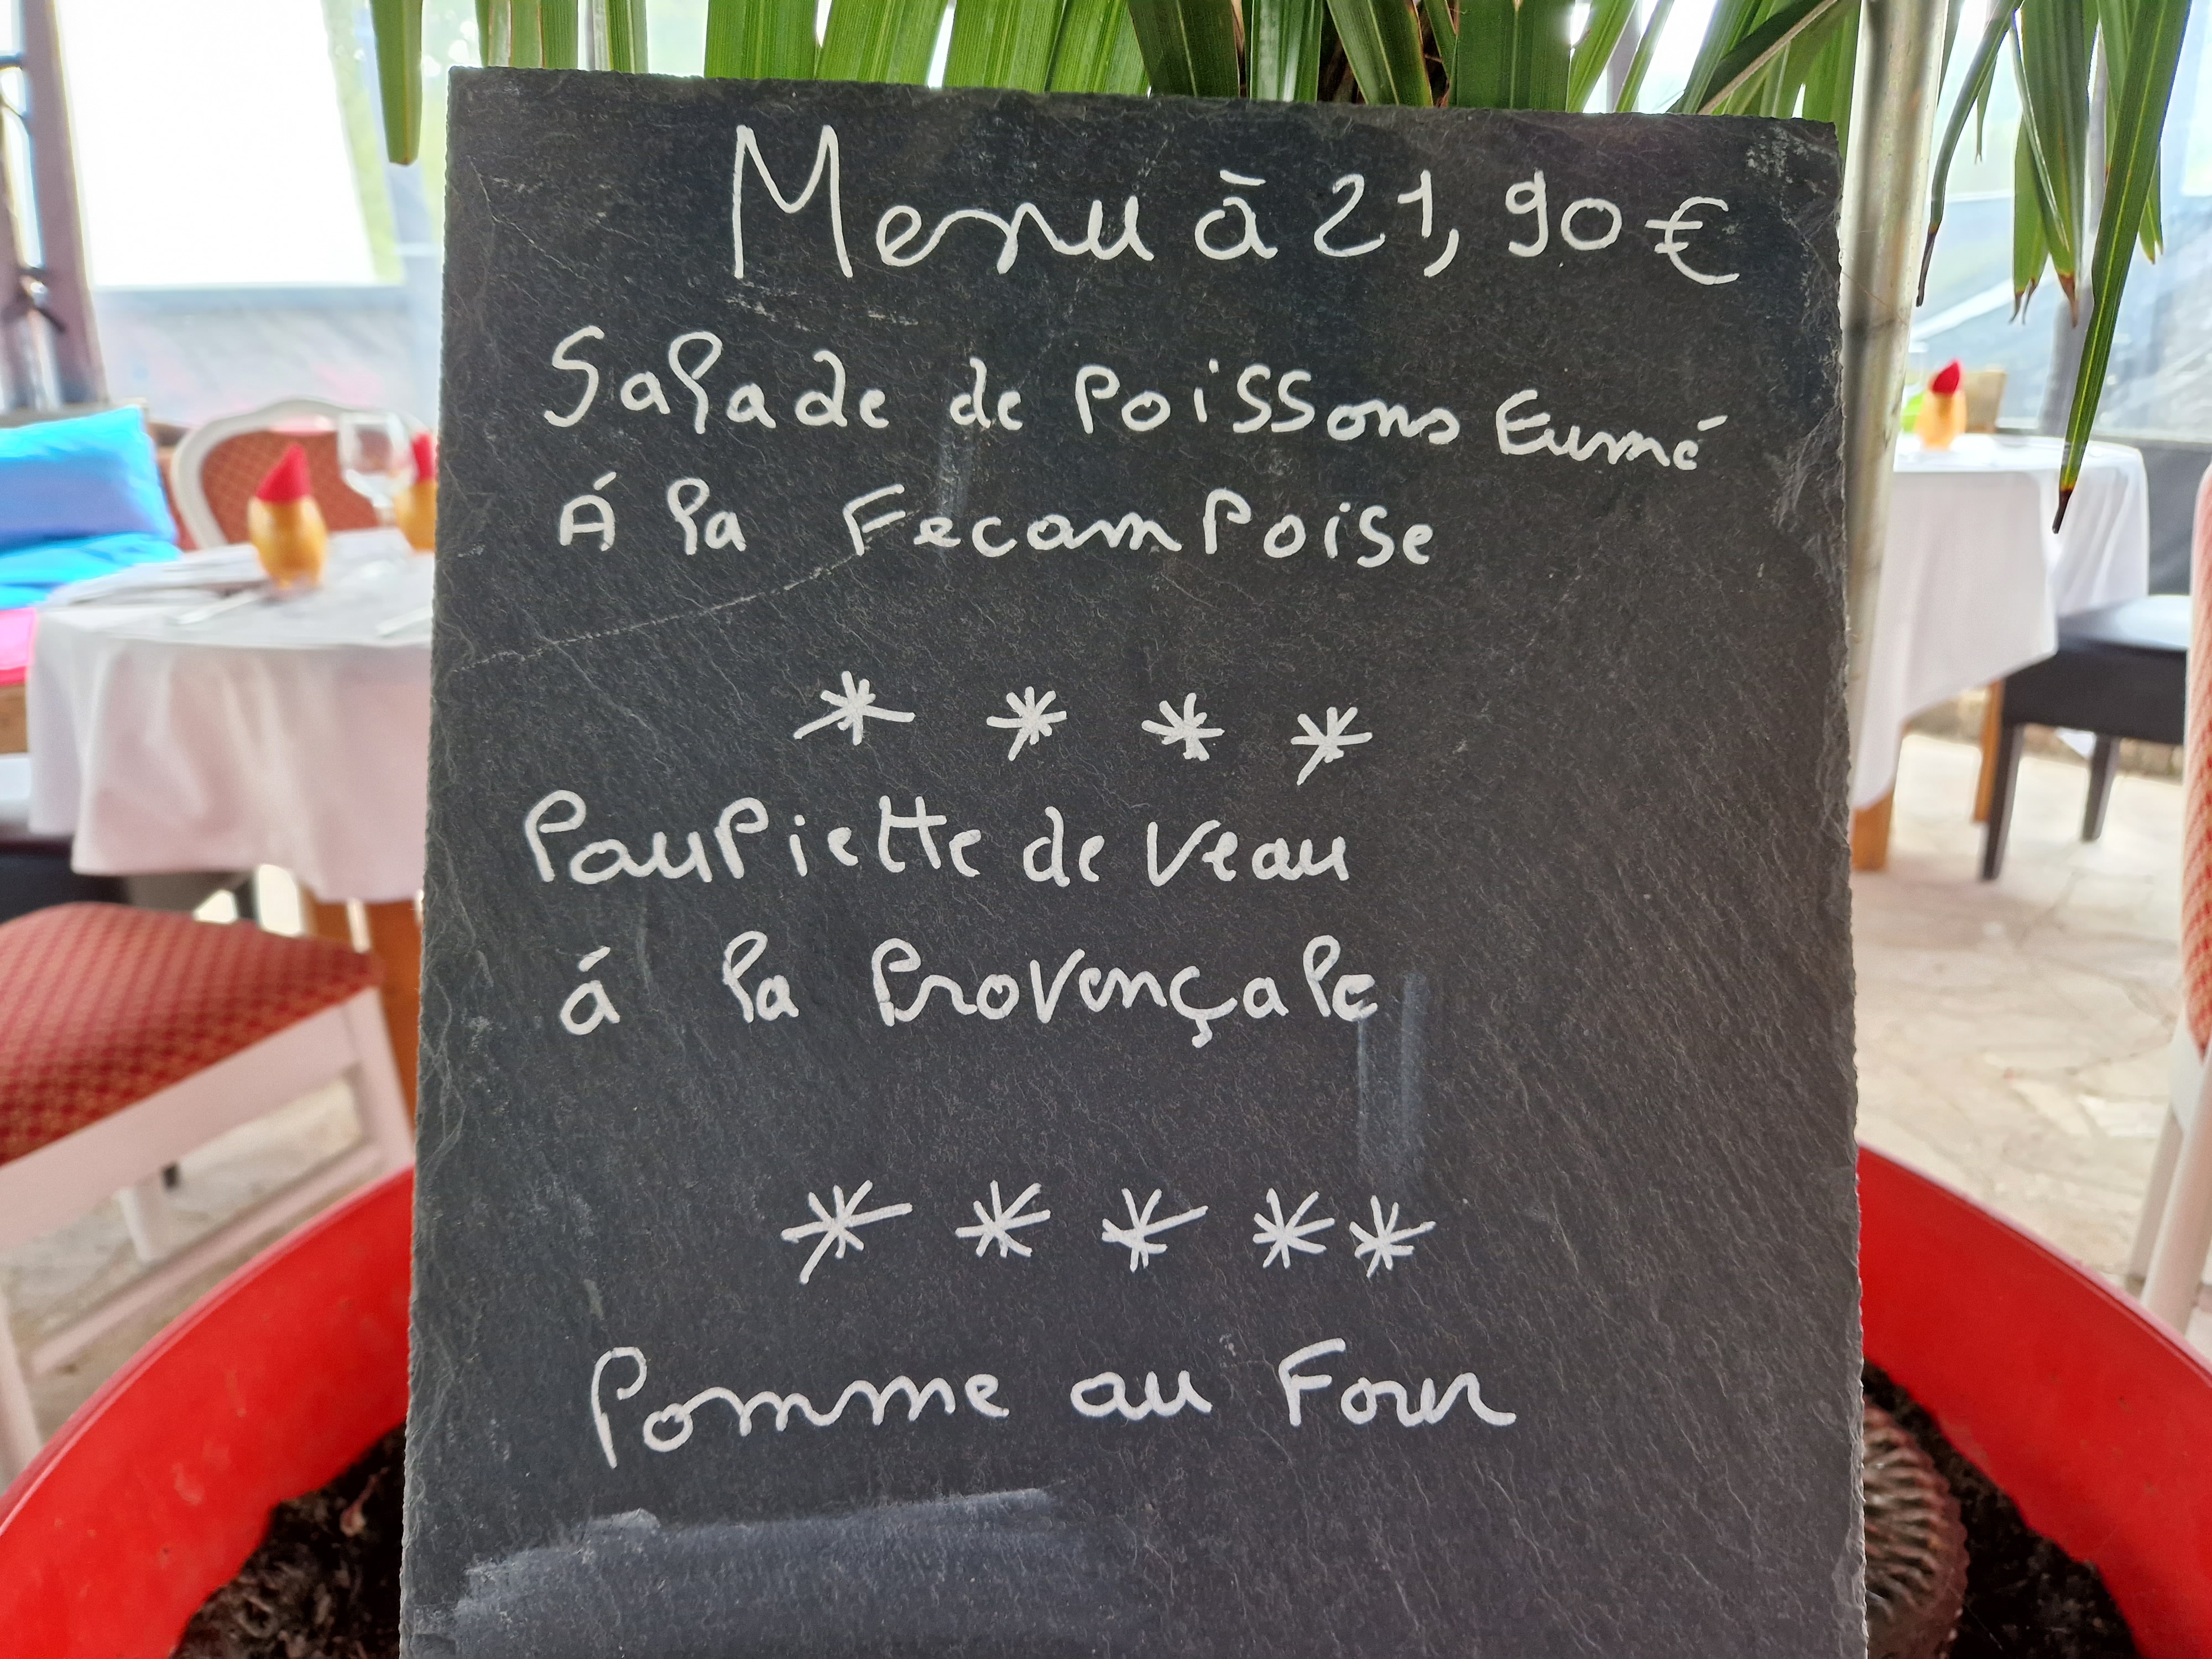 Menu à 21,90€
Salade de Poissons Eumé
Á la Fecampoise
* * * *
Paupiette de Veau
á la Provençale
* * * * *
Pomme au Four